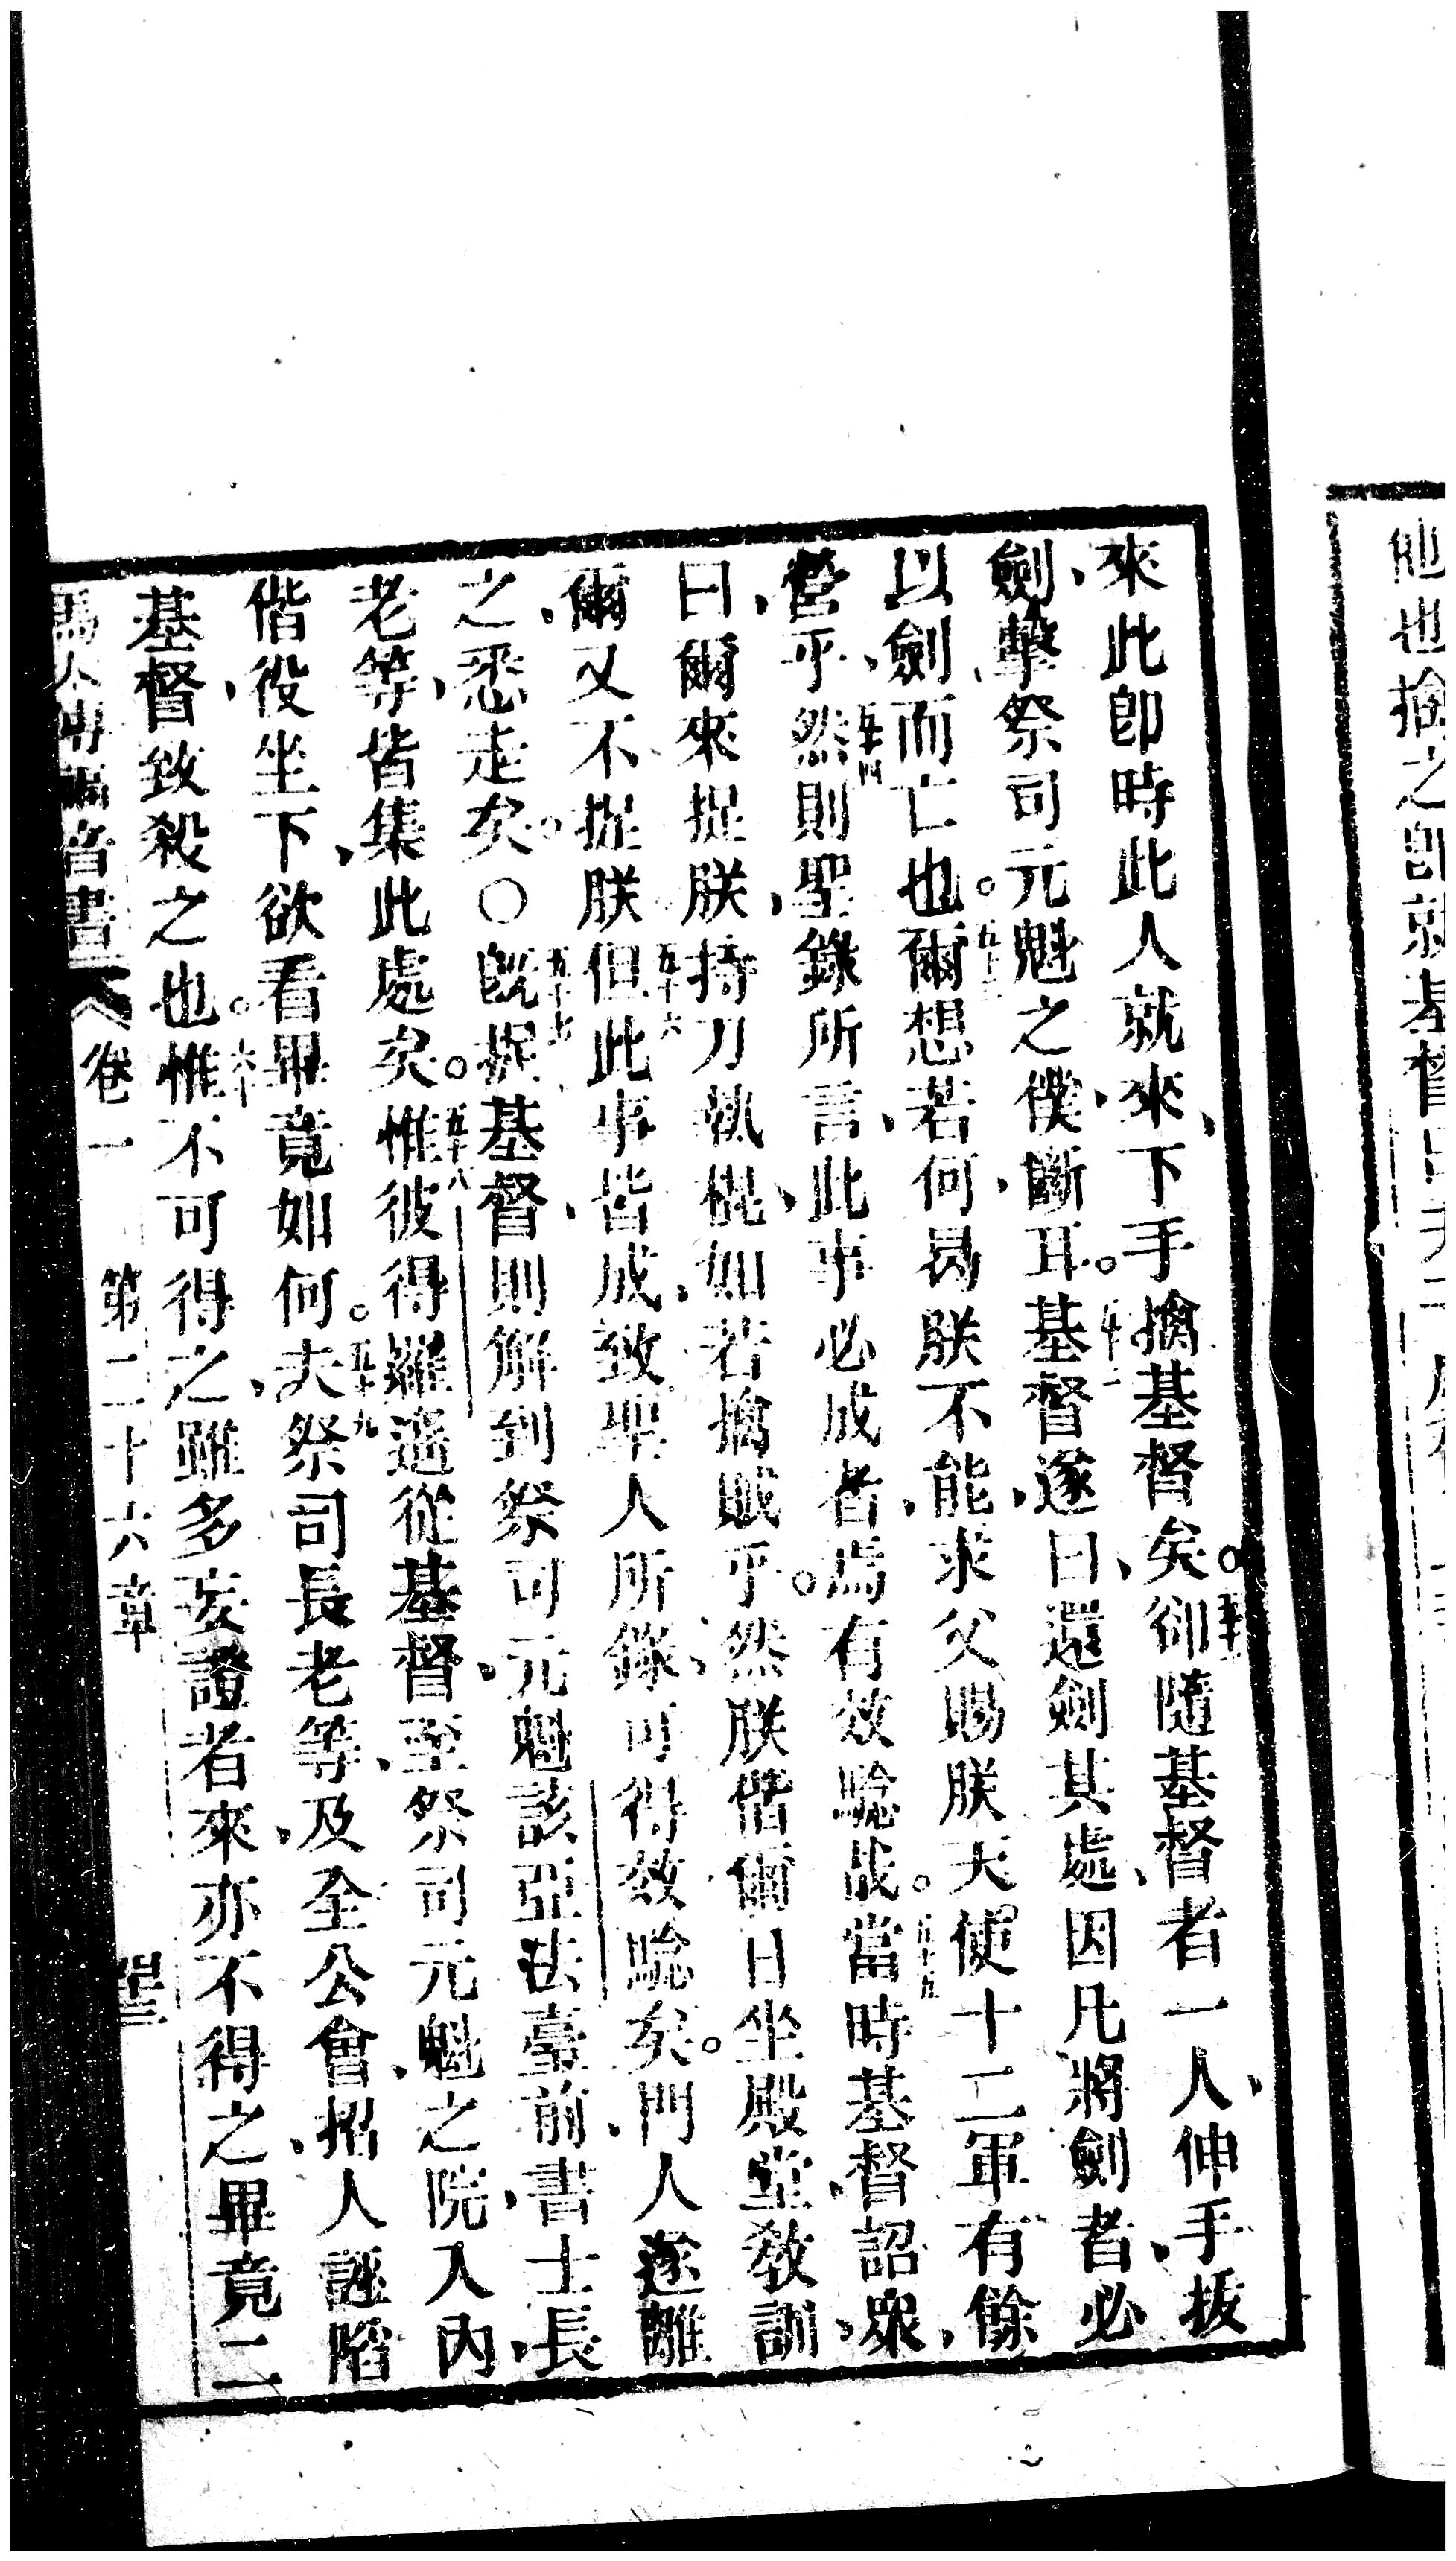 他也擒之卽就基督曰夫
來此卽時此人就來、下手擒基督矣。五十一卻隨基督者一人、伸手、拔
劍、擊祭司元魁之僕、斷耳。五十二基督遂曰、還劍其處、因凡將劍者、必
以劍而亡也。五十三爾想若何、曷朕不能、求父賜朕天使。十二軍有餘、
營乎、五十四然則聖錄所言、此事必成者、焉有效騐哉。五十五當時基督、詔眾、
曰、爾來捉朕、持刀執棍、如若擒賊乎。然朕偕爾日坐殿堂教訓、
爾又不捉朕、五十六但此事皆成、致聖人所錄、可得效騐矣。門人、遂離
之、悉走矣。〇五十七旣捉基督、則解到祭司元魁該亞法臺前、書士長
老等、皆集此處矣。五十八惟彼得羅遥從基督、至祭司元魁之院、入內、
偕役坐下、欲看畢竟如何。五十九夫祭司長老等、及全公會、招人誣陷
基督、致殺之也。六十惟不可得之、雖多妄證者來、亦不得之、畢竟二
福音書 卷一 第二十六章